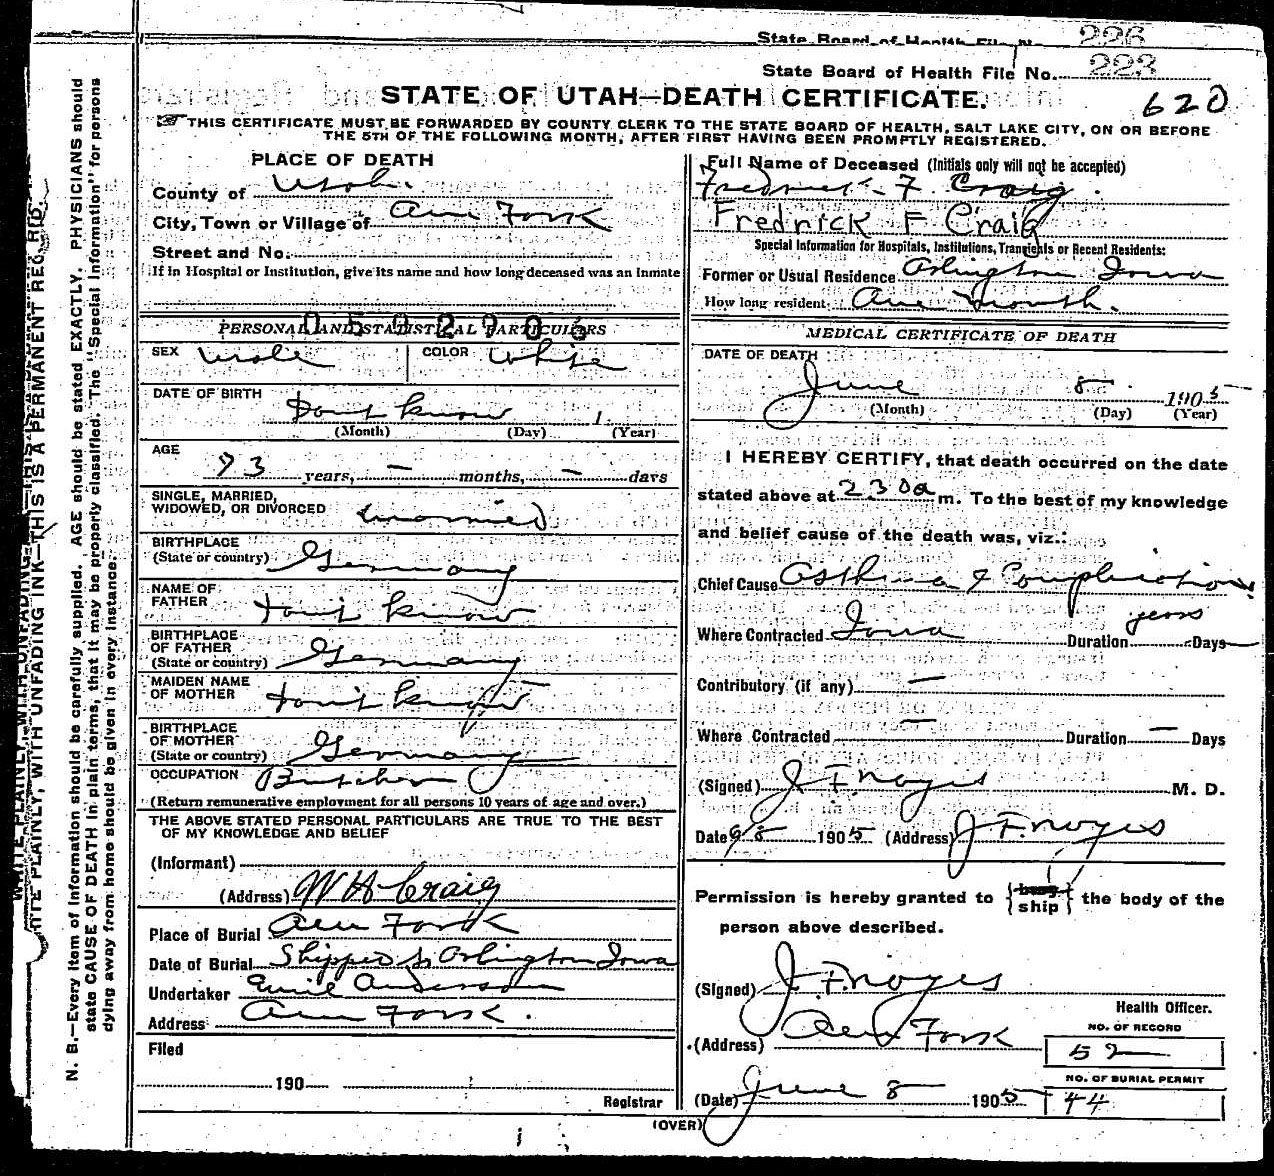 State Board of Health File No. 226
State Board of Health File No. 223
STATE OF UTAH—DEATH CERTIFICATE.
620
THIS CERTIFICATE MUST BE FORWARDED BY COUNTY CLERK TO THE STATE BOARD OF HEALTH, SALT LAKE CITY, ON OR BEFORE
THE 5TH OF THE FOLLOWING MONTH, AFTER FIRST HAVING BEEN PROMPTLY REGISTERED.
WRITE PLAINLY, WITH UNFADING INK—THIS IS A PERMANENT RECORD.
N. B.—Every item of Information should be carefully supplied. AGE should be stated EXACTLY. PHYSICIANS should
state CAUSE OF DEATH in plain terms, that it may be properly classified. The "Special Information" for persons
dying away from home should be given in every instance.
PLACE OF DEATH
County of Utah.
City, Town or Village of Am Fork
Street and No.
If in Hospital or Institution, give its name and how long deceased was an Inmate
PERSONAL AND STATISTICAL PARTICULARS
0502906
SEX Male COLOR White
DATE OF BIRTH Dont know 1
(Month) (Day) (Year)
AGE
73 years, — months, — days
SINGLE, MARRIED,
WIDOWED, OR DIVORCED married
BIRTHPLACE
(State or country) Germany
NAME OF
FATHER dont know
BIRTHPLACE
OF FATHER
(State or country) Germany
MAIDEN NAME
OF MOTHER dont know
BIRTHPLACE
OF MOTHER
(State or country) Germany
OCCUPATION Butcher
(Return remunerative employment for all persons 10 years of age and over.)
THE ABOVE STATED PERSONAL PARTICULARS ARE TRUE TO THE BEST
OF MY KNOWLEDGE AND BELIEF
(Informant)
(Address) W H Craig
Place of Burial Am Fork
Date of Burial Shipped to Arlington Iowa
Undertaker Emil Anderson
Address Am Fork.
Filed
190
Registrar
Full Name of Deceased (Initials only will not be accepted)
Fredrick F Craig.
Fredrick F Craig
Special Information for Hospitals, Institutions, Transients or Recent Residents:
Former or Usual Residence Arlington Iowa
How long resident One month.
MEDICAL CERTIFICATE OF DEATH
DATE OF DEATH
June 8 1905
(Month) (Day) (Year)
I HEREBY CERTIFY, that death occurred on the date
stated above at 230a m. To the best of my knowledge
and belief cause of the death was, viz.:
Chief Cause Asthma & Complications
Where Contracted Iowa Duration years Days
Contributory (if any) —
Where Contracted — Duration — Days
(Signed) J F Noyes M. D.
Date 1905 (Address) J F Noyes
Permission is hereby granted to {bury ship} the body of the
person above described.
(Signed) J. F. Noyes
Health Officer.
(Address) Am Fork
NO. OF RECORD
52
NO. OF BURIAL PERMIT
44
(Date) June 8 1905
(OVER)